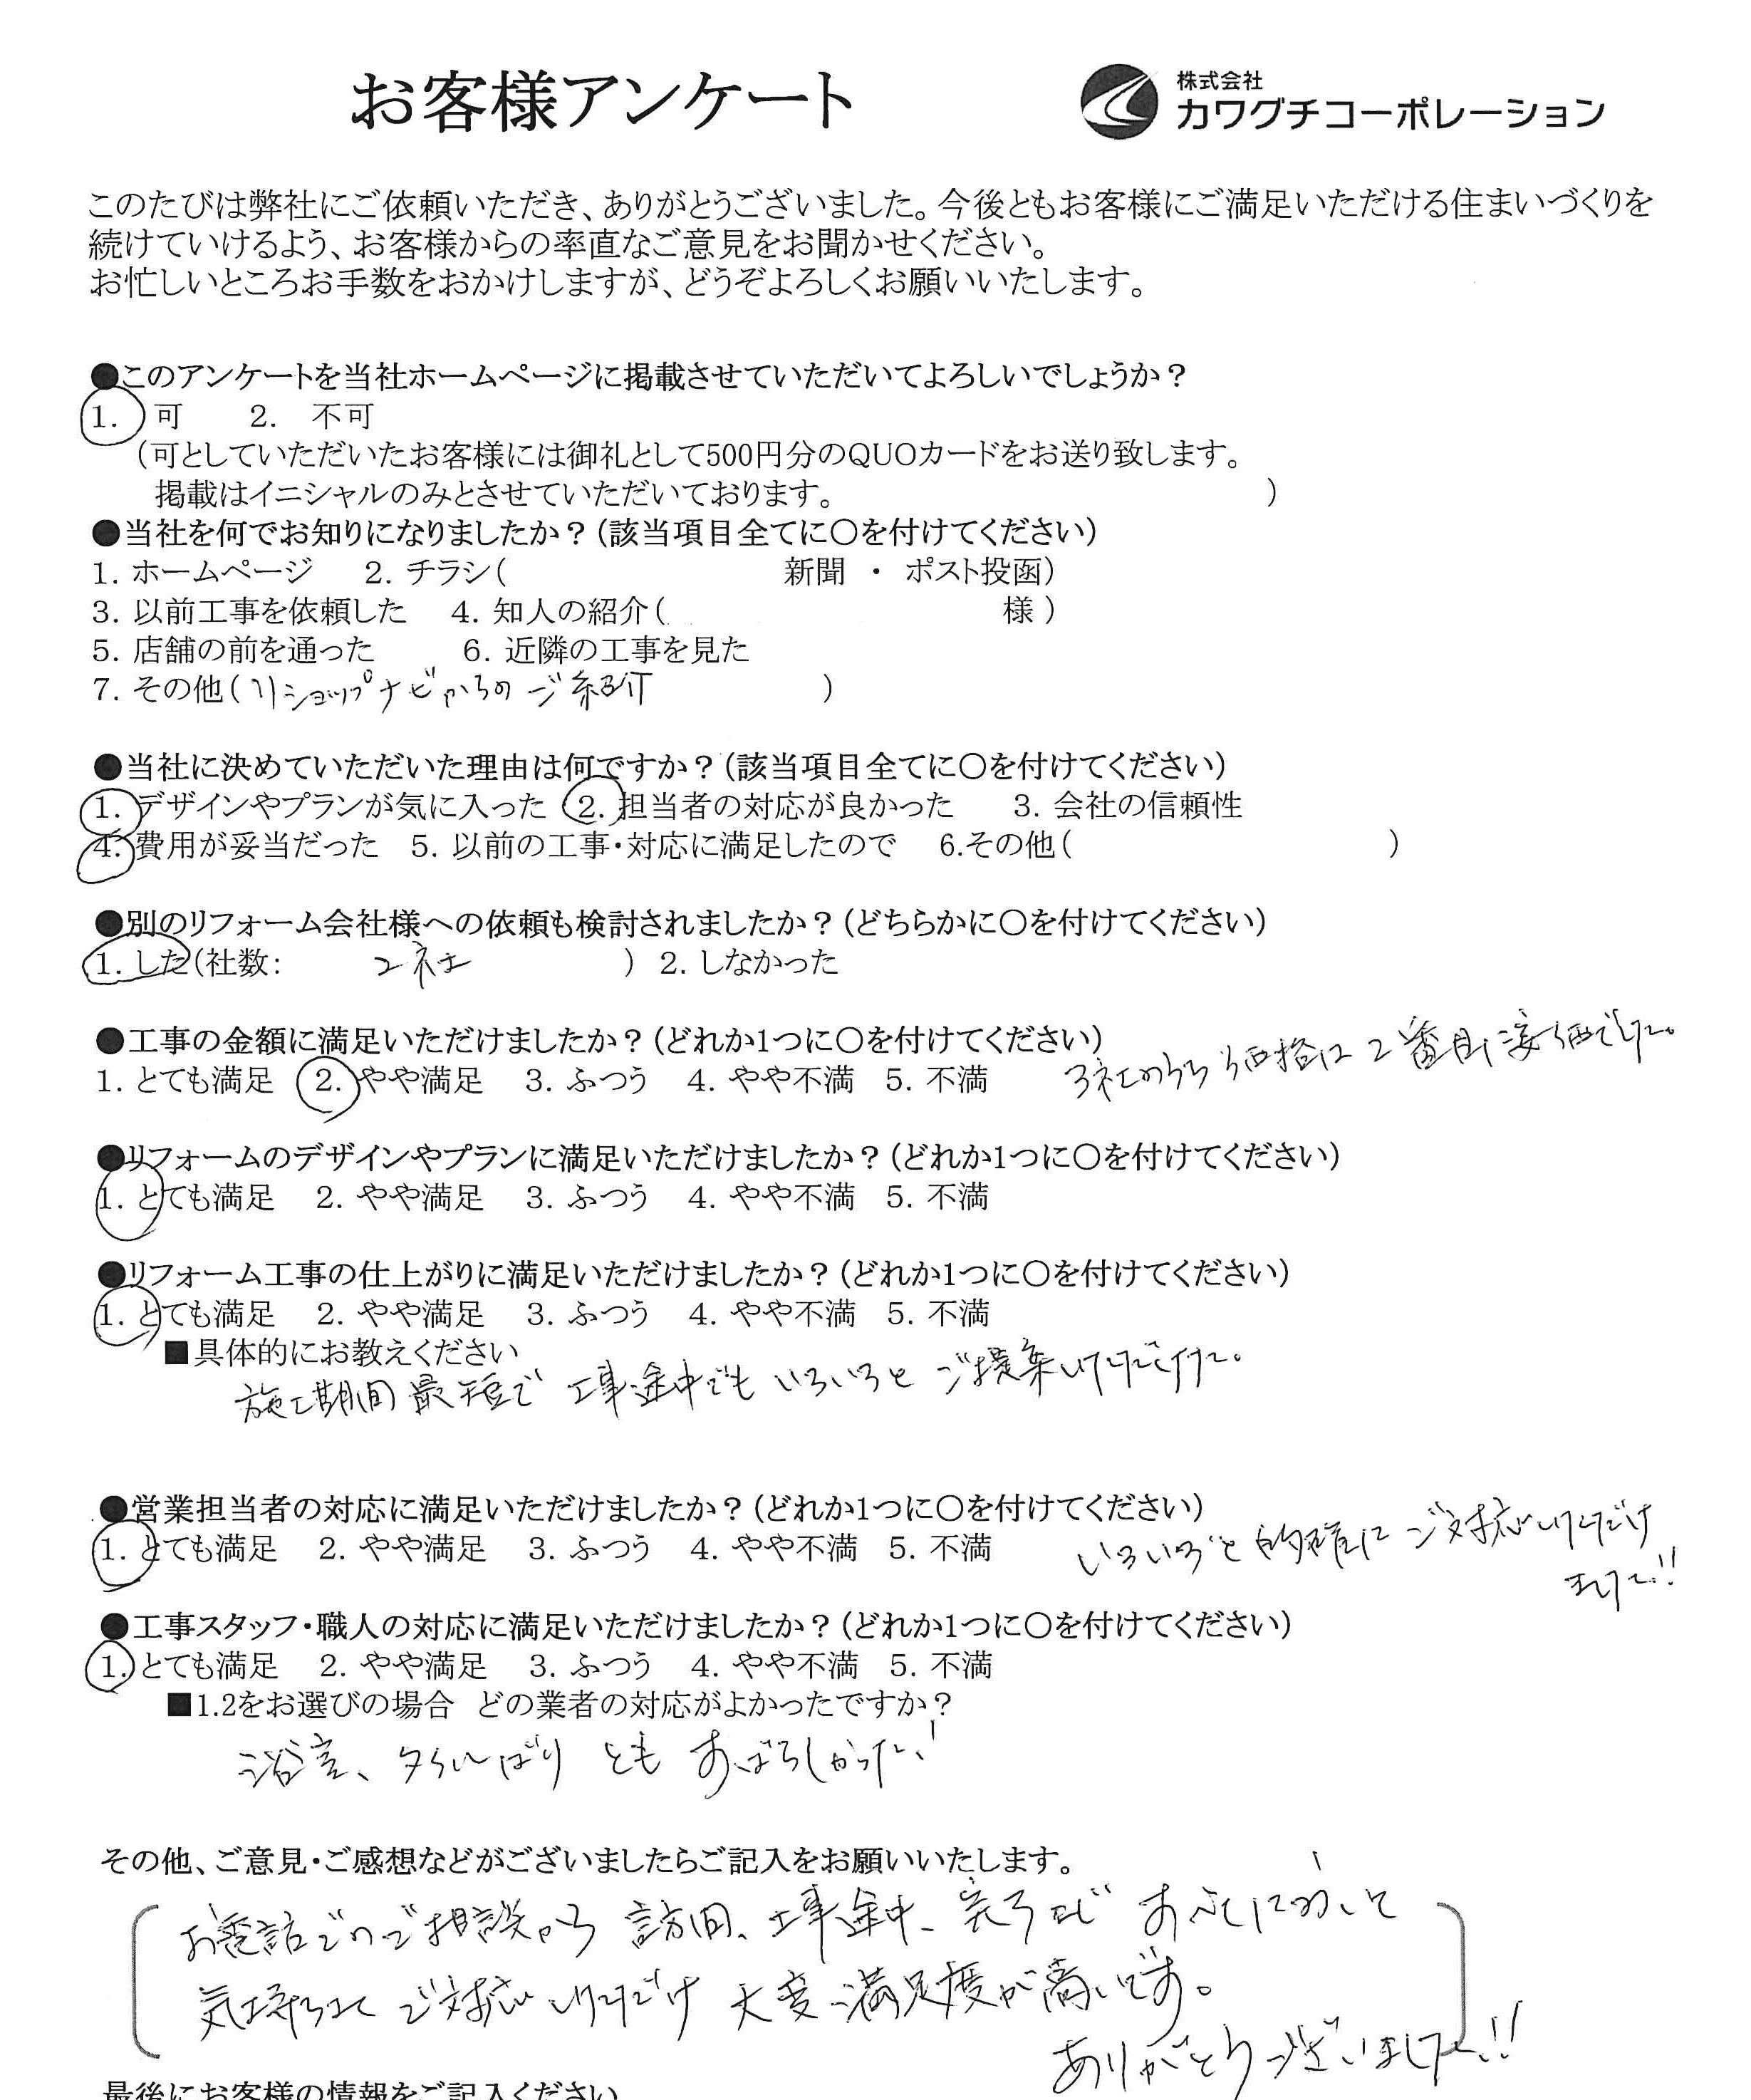 お客様アンケート
株式会社
カワグチコーポレーション
このたびは弊社にご依頼いただき、ありがとうございました。今後ともお客様にご満足いただける住まいづくりを
続けていけるよう、お客様からの率直なご意見をお聞かせください。
お忙しいところお手数をおかけしますが、どうぞよろしくお願いいたします。
●このアンケートを当社ホームページに掲載させていただいてよろしいでしょうか？
1. 可 2. 不可
（可としていただいたお客様には御礼として500円分のQUOカードをお送り致します。
掲載はイニシャルのみとさせていただいております。 ）
●当社を何でお知りになりましたか？（該当項目全てに○を付けてください）
1. ホームページ 2. チラシ（ 新聞 ・ ポスト投函）
3. 以前工事を依頼した 4. 知人の紹介（ 様 ）
5. 店舗の前を通った 6. 近隣の工事を見た
7. その他（リショップナビからのご紹介 ）
●当社に決めていただいた理由は何ですか？（該当項目全てに○を付けてください）
1. デザインやプランが気に入った 2. 担当者の対応が良かった 3. 会社の信頼性
4. 費用が妥当だった 5. 以前の工事・対応に満足したので 6.その他（ ）
●別のリフォーム会社様への依頼も検討されましたか？（どちらかに○を付けてください）
1. した（社数： 2社 ） 2. しなかった
●工事の金額に満足いただけましたか？（どれか1つに○を付けてください）
1. とても満足 2. やや満足 3. ふつう 4. やや不満 5. 不満
3社のうち価格は2番目に安価でした。
●リフォームのデザインやプランに満足いただけましたか？（どれか1つに○を付けてください）
1. とても満足 2. やや満足 3. ふつう 4. やや不満 5. 不満
●リフォーム工事の仕上がりに満足いただけましたか？（どれか1つに○を付けてください）
1. とても満足 2. やや満足 3. ふつう 4. やや不満 5. 不満
■具体的にお教えください
施工期間最短で 工事途中でもいろいろとご提案いただけた。
●営業担当者の対応に満足いただけましたか？（どれか1つに○を付けてください）
1. とても満足 2. やや満足 3. ふつう 4. やや不満 5. 不満
いろいろと的確にご対応いただけ
ました!!
●工事スタッフ・職人の対応に満足いただけましたか？（どれか1つに○を付けてください）
1. とても満足 2. やや満足 3. ふつう 4. やや不満 5. 不満
■1.2をお選びの場合 どの業者の対応がよかったですか？
浴室、タイルばり とも すばらしかった!
その他、ご意見・ご感想などがございましたらご記入をお願いいたします。
お電話でのご相談から 訪問、工事途中、完了まで すべてにおいて
気持ちよくご対応いただけ 大変満足度が高いです。
ありがとうございました!!
最後にお客様の情報をご記入ください